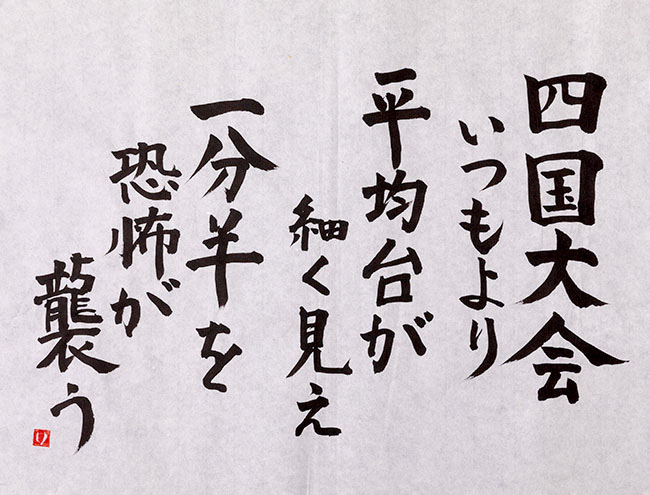 四国大会
いつもより
平均台が
細く見え
一分半を
恐怖が
襲う